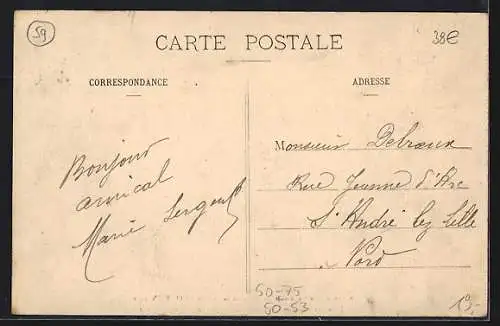 59
CARTE POSTALE
38€
CORRESPONDANCE
ADRESSE
Bonjour
amical
Marie
Monsieur Debraux
Rue Jeanne d'Arc
St André lez Lille
Nord
50-75
50-53